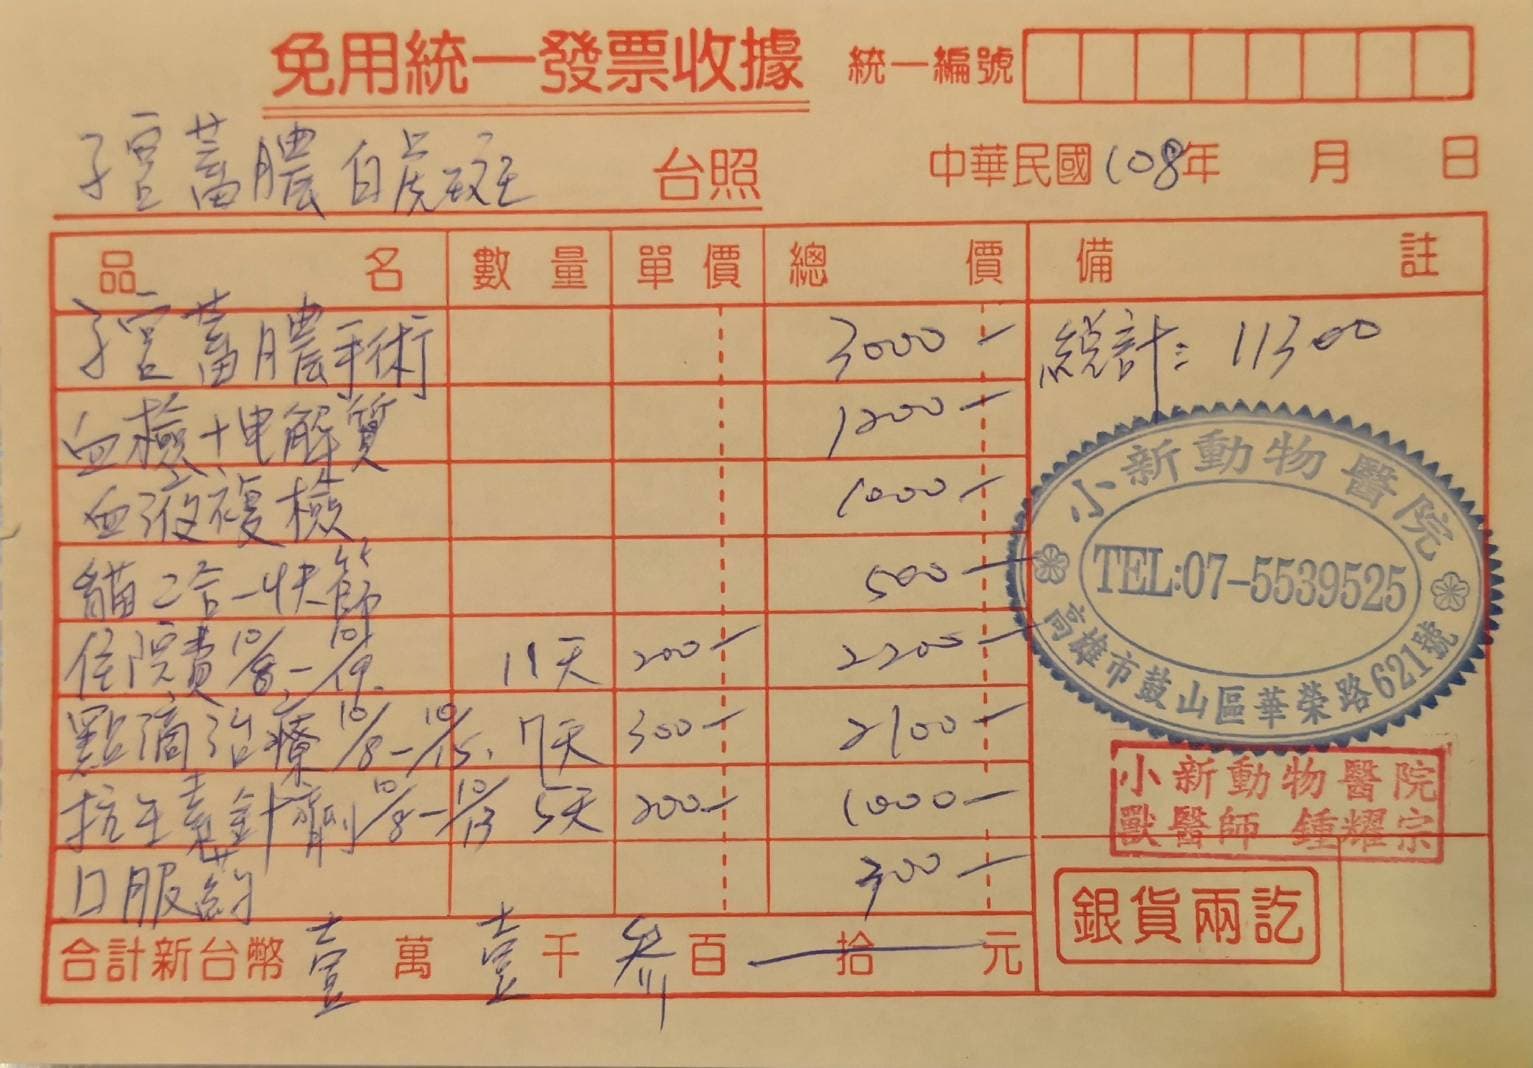 免用統一發票收據
統一編號
子宮蓄膿白虎斑 台照
中華民國108年 月 日
品名 數量 單價 總價 備註
子宮蓄膿手術 3000 —
血檢+电解質 1200 —
血液複檢 1000 —
貓二合一快篩 500 —
住院費10/8 — 10/19. 11天 200 — 2200 —
點滴治療10/8 — 10/15. 7天 300 — 2100 —
抗生素針劑10/8 — 10/13 5天 200 — 1000 —
口服葯 300 —
合計新台幣壹萬壹千叁百拾元
總計: 11300
小新動物醫院
TEL:07-5539525
高雄市鼓山區華榮路621號
小新動物醫院
獸醫師 鍾耀宗
銀貨兩訖